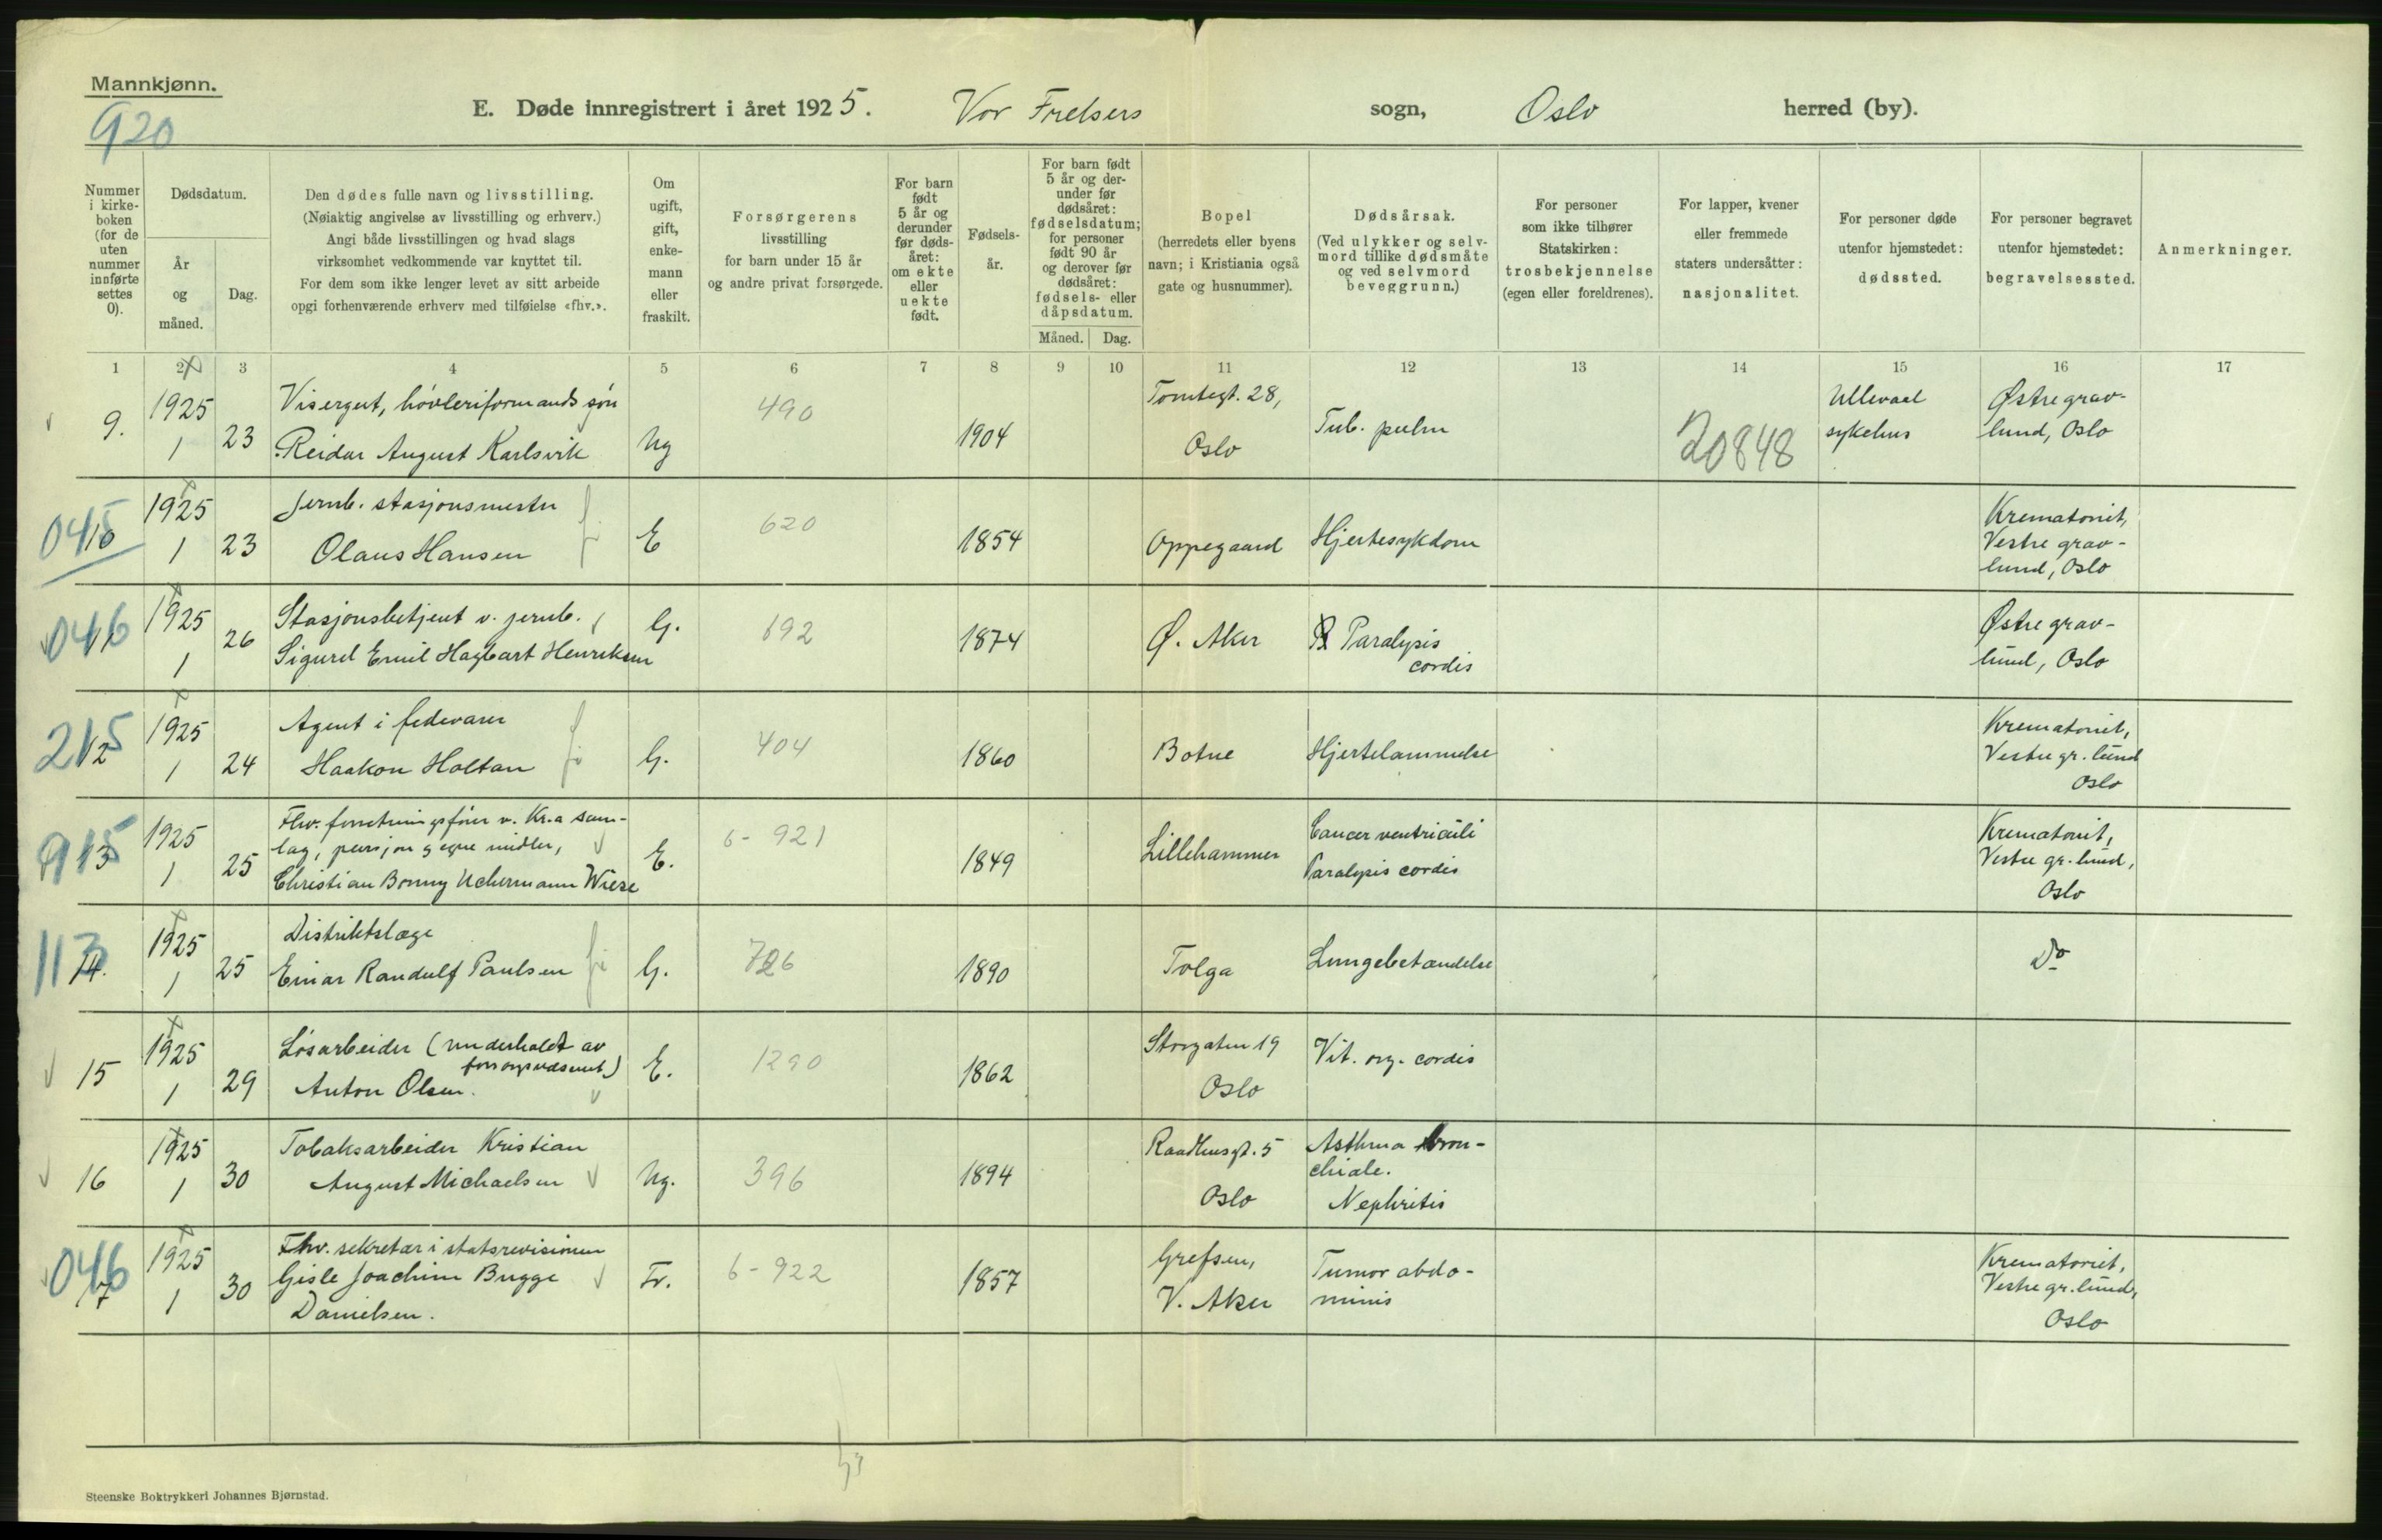 Mannkjønn.
920
E. Døde innregistrert i året 1925. Vor Frelsers sogn, Oslo herred (by).
Nummer i kirkeboken (for de uten nummer innførte settes 0).
Dødsdatum.
År og måned.
Dag.
Den dødes fulle navn og livsstilling.
(Nøiaktig angivelse av livsstilling og erhverv.)
Angi både livsstillingen og hvad slags
virksomhet vedkommende var knyttet til.
For dem som ikke lenger levet av sitt arbeide
opgi forhenværende erhverv med tilføielse «fhv.».
Om ugift, gift, enkemann eller fraskilt.
Forsørgerens
livsstilling
for barn under 15 år
og andre privat forsørgede.
For barn født 5 år og derunder før dødsåret: om ekte eller uekte født.
Fødselsår.
For barn født 5 år og derunder før dødsåret: fødselsdatum; for personer født 90 år og derover før dødsåret: fødsels- eller dåpsdatum.
Måned. Dag.
Bopel
(herredets eller byens
navn; i Kristiania også
gate og husnummer).
Dødsårsak.
(Ved ulykker og selvmord tillike dødsmåte
og ved selvmord
beveggrunn.)
For personer
som ikke tilhører
Statskirken:
trosbekjennelse
(egen eller foreldrenes).
For lapper, kvener
eller fremmede
staters undersåtter:
nasjonalitet.
For personer døde
utenfor hjemstedet:
dødssted.
For personer begravet
utenfor hjemstedet:
begravelsessted.
Anmerkninger.
1 2 3 4 5 6 7 8 9 10 11 12 13 14 15 16 17
9. 1925 1 23 Visergut, høvleriformands søn
Reidar August Karlsvik Ug 490 1904 Tomtegt. 28,
Oslo Tub. pulm 20848 Ullevaal
sykehus Østre grav-
lund, Oslo
045 1925 1 23 Jernb. stasjonsmester
Olaus Hansen E 620 1854 Oppegaard Hjertesykdom Krematoriet,
Vestre grav-
lund, Oslo
046 1925 1 26 Stasjonsbetjent v. jernb.
Sigurd Emil Hagbart Henriksen G. 692 1874 Ø. Aker Paralysis
cordis Østre grav-
lund, Oslo
215 12 1925 1 24 Agent i fedevarer
Haakon Holtan G. 404 1860 Botne Hjertelammelse Krematoriet,
Vestre gr. lund
Oslo
13 1925 1 25 Fhv. forretningsfører v. Kr.a sam-
lag, pensjon g egne midler,
Christian Bonny Uchermann Wiese E. 6-921 1849 Lillehammer Cancer ventriculi
Paralysis cordis Krematoriet,
Vestre gr. lund,
Oslo
113 14. 1925 1 25 Distriktslæge
Einar Randulf Paulsen G. 726 1890 Tolga Lungebetændelse Do
15 1925 1 29 Løsarbeider (underholdt av
forsorgsvæsenet)
Anton Olsen. E. 1290 1862 Storgaten 19
Oslo Vit. org. cordis
16 1925 1 30 Tobaksarbeider Kristian
August Michaelsen Ug. 396 1894 Raadhusgt. 5
Oslo Asthma bron-
chiale.
Nephritis
046 17 1925 1 30 Fhv. sekretær i statsrevisionen
Gisle Joachim Bugge
Danielsen. Fr. 6-922 1857 Grefsen,
V. Aker Tumor abdo-
minis Krematoriet,
Vestre gr. lund,
Oslo
Steenske Boktrykkeri Johannes Bjørnstad.